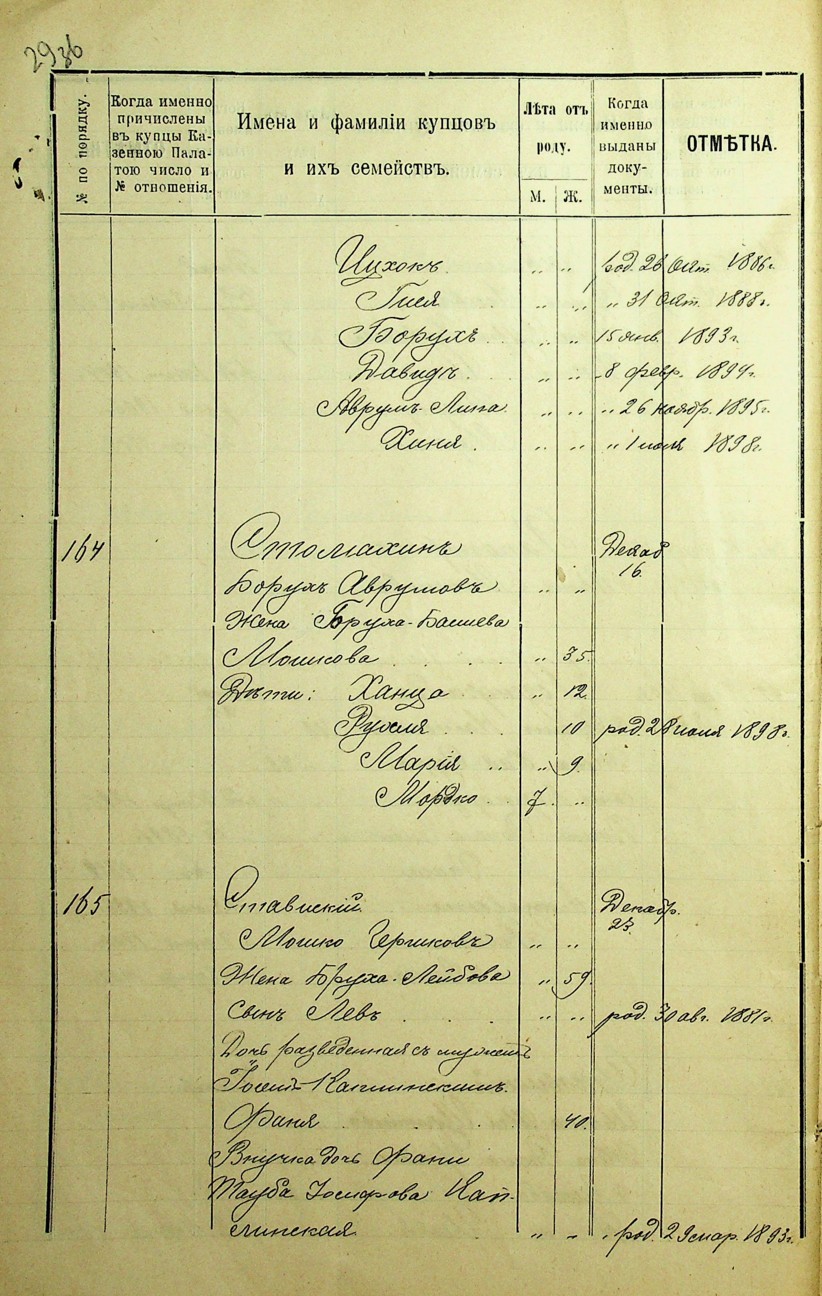 293б
№ по порядку.
Когда именно
причислены
въ купцы Ка-
зенною Пала-
тою число и
№ отношенія.
Имена и фамиліи купцовъ
и ихъ семействъ.
Лѣта отъ
роду.
М. Ж.
Когда
именно
выданы
доку-
менты.
ОТМѢТКА.
Ицхокъ " " род. 26 Окт. 1886 г.
Гися " " " 31 Окт. 1888 г.
Борухъ " " 15 янв. 1893 г.
Давидъ " " 8 февр. 1894 г.
Аврумъ-Липа " " " 26 ноябр. 1895 г.
Хиня " " " 1 июля 1898 г.
164 Стомахинъ Декаб
16.
Борухъ Аврумовъ " "
Жена Бруха-Башева
Мошкова " 35.
Дѣти: Ханца " 12.
Рухля 10 род. 28 июля 1898 г.
Марія " 9.
Мордко 7. "
165 Ставискій Декабр.
23.
Мошко Гершковъ " "
Жена Бруха-Лейбова " 59.
Сынъ Левъ " " род. 30 авг. 1881 г.
Дочь разведенная съ мужемъ
Іосемъ Каплинскимъ.
Фаня 40.
Внучка дочь Фани
Тауба Іосифова Кап-
линская " " род. 29 мар. 1893 г.